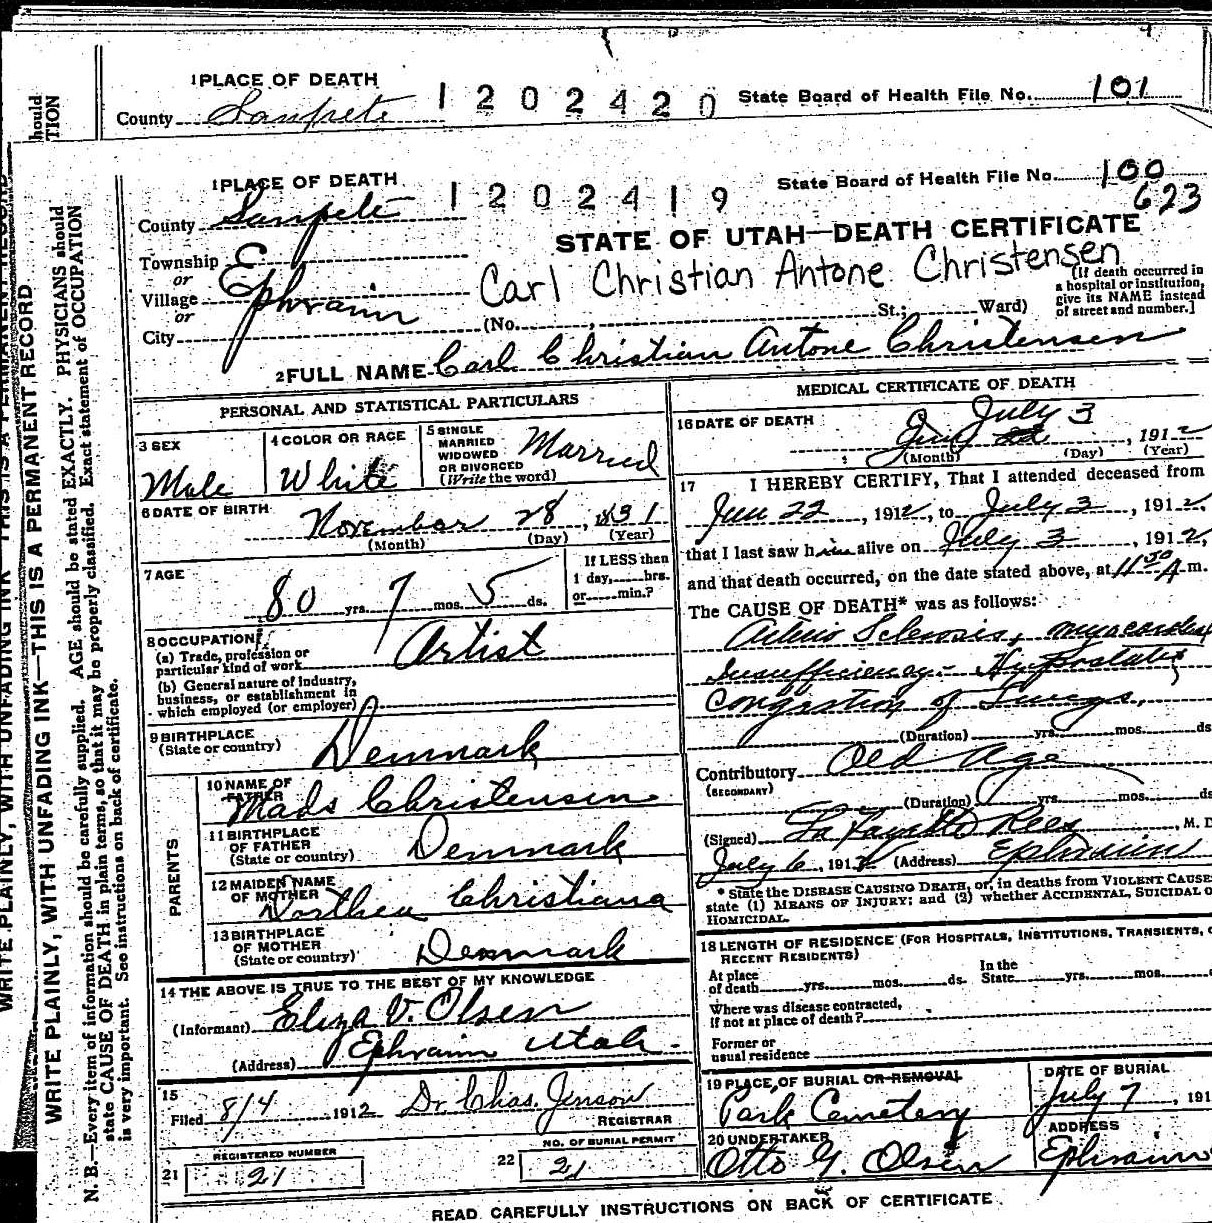 1 PLACE OF DEATH
County Sanpete
1202420
State Board of Health File No. 101
1 PLACE OF DEATH
1202419
State Board of Health File No. 100
623
County Sanpete
STATE OF UTAH—DEATH CERTIFICATE
Township E
or
Village Ephraim
or
City
Carl Christian Antone Christensen
(No. , St.; Ward)
[If death occurred in
a hospital or institution,
give its NAME instead
of street and number.]
2 FULL NAME Carl Christian Antone Christensen
PERSONAL AND STATISTICAL PARTICULARS
3 SEX
Male
4 COLOR OR RACE
White
5 SINGLE
MARRIED
WIDOWED
OR DIVORCED
(Write the word)
Married
6 DATE OF BIRTH
November 28, 1831
(Month) (Day) (Year)
7 AGE
80 yrs. 7 mos. 5 ds.
If LESS than
1 day, hrs.
or min.?
8 OCCUPATION
(a) Trade, profession or
particular kind of work
Artist
(b) General nature of industry,
business, or establishment in
which employed (or employer)
9 BIRTHPLACE
(State or country)
Denmark
PARENTS
10 NAME OF
FATHER
Mads Christensen
11 BIRTHPLACE
OF FATHER
(State or country)
Denmark
12 MAIDEN NAME
OF MOTHER
Dorthea Christiana
13 BIRTHPLACE
OF MOTHER
(State or country)
Denmark
14 THE ABOVE IS TRUE TO THE BEST OF MY KNOWLEDGE
(Informant) Eliza V. Olsen
(Address) Ephraim Utah
15
Filed 8/4 1912 Dr. Chas. Jenson
REGISTRAR
REGISTERED NUMBER
21 21
NO. OF BURIAL PERMIT
22 21
MEDICAL CERTIFICATE OF DEATH
16 DATE OF DEATH
July 3
, 1912
(Month) (Day) (Year)
17 I HEREBY CERTIFY, That I attended deceased from
June 22, 1912, to July 3, 1912,
that I last saw him alive on July 3, 1912,
and that death occurred, on the date stated above, at 11 30 A m.
The CAUSE OF DEATH* was as follows:
Arterio Sclerosis, myocardial
Insufficiency- Hypostatic
Congestion of Lungs,
(Duration) yrs. mos. ds
Contributory Old Age
(SECONDARY)
(Duration) yrs. mos. ds
(Signed) La Fayette Rees, M. D
July 6, 1912 (Address) Ephraim
* State the DISEASE CAUSING DEATH, or, in deaths from VIOLENT CAUSE
state (1) MEANS OF INJURY; and (2) whether ACCIDENTAL, SUICIDAL O
HOMICIDAL.
18 LENGTH OF RESIDENCE (FOR HOSPITALS, INSTITUTIONS, TRANSIENTS, O
RECENT RESIDENTS)
At place
of death yrs. mos. ds.
In the
State yrs. mos.
Where was disease contracted,
if not at place of death?
Former or
usual residence
19 PLACE OF BURIAL OR REMOVAL
Park Cemetery
DATE OF BURIAL
July 7, 191
20 UNDERTAKER
Otto G. Olsen
ADDRESS
Ephraim
READ CAREFULLY INSTRUCTIONS ON BACK OF CERTIFICATE
WRITE PLAINLY, WITH UNFADING INK—THIS IS A PERMANENT RECORD
N. B.—Every item of information should be carefully supplied. AGE should be stated EXACTLY. PHYSICIANS should
state CAUSE OF DEATH in plain terms, so that it may be properly classified. Exact statement of OCCUPATION
is very important. See instructions on back of certificate.
WRITE PLAINLY, WITH UNFADING INK THIS IS A PERMANENT RECORD
hould
TION